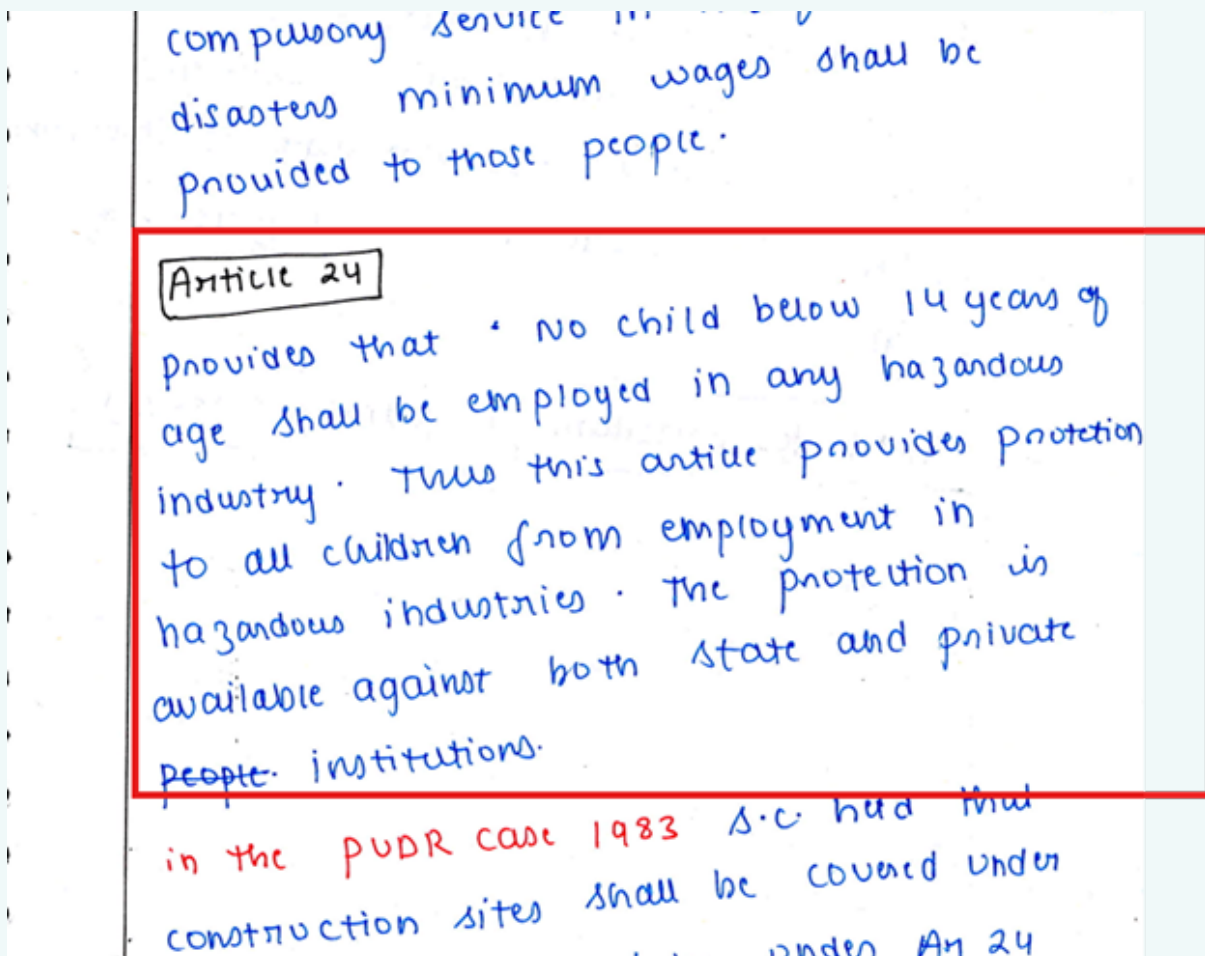 compulsory service in
disasters minimum wages shall be
provided to those people.
Article 24
provides that ‘ No child below 14 years of
age shall be employed in any hazardous
industry. Thus this article provides protetion
to all children from employment in
hazardous industries. The protection is
available against both state and private
people. institutions.
in the PUDR case 1983 S.C. held that
construction sites shall be covered under
under Ar 24